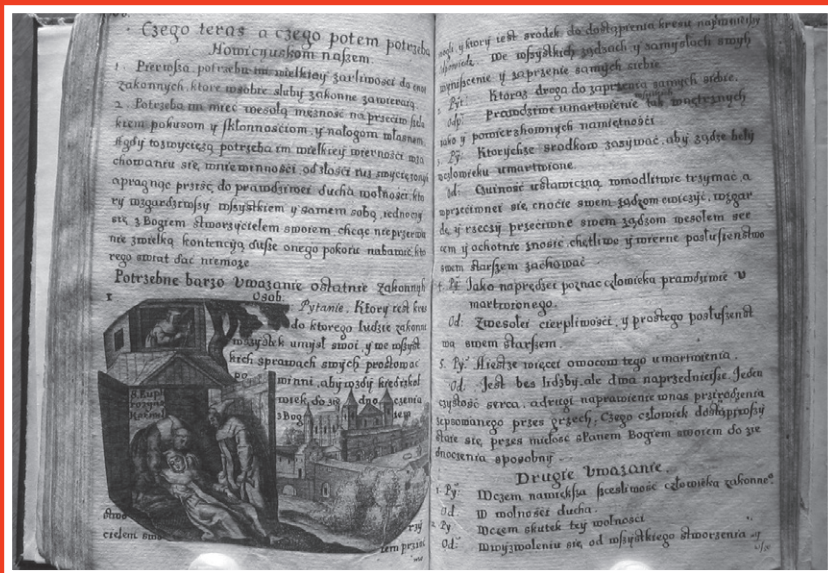 Czego teras a czego potem potrzeba
Nowicyuskom naszem.
1. Pierwsza. potrzeba im wielkiey zarliwosci do cnot
zakonnych, ktore wsobie sluby zakonne zawieraią
2. Potrzeba im miec wesołą męzność na przeciw
kiem pokusom y skłonnosciom, y nałogom własnem,
Agdy to zwyciezą potrzeba im wielkiey wiernosci wza
chowaniu się, wniewinnosci, od złosci
apragnąc przyść do prawdziwei ducha wolności, kto
ry wzgardziwszy wszystkiem y samem sobą, iednoczy
się z Bogiem stworzycielem swoiem, chcąc nieprzerwa
nie zwielką kontencyą dusze onego pokoiu nabawic, kto
rego swiat dac niemoze
Potrzebne barzo Uwazanie ostatnie zakonnych
osob.
1 Pytanie. Ktory iest kres
do ktorego ludzie zakonni
wszystek umysł swoi, y we wszyst
kich sprawach swych prostować
powinni, aby wzdy kiedyzkol
wiek, do zie dno czenia
z Bog iem
S. Eup
rozyna
stwo rzy
cielem swo iem przyść
mogli, y ktory iest srodek do dostąpienia kresu
We wszystkich ządzach y zamysłach swych
wyniszczenie y zaprzenie samych siebie.
2. Pyt: Ktoraz droga do zaprzenia samych siebie.
Odp: Prawdziwe umartwienie tak wnętrznych
iako y powierzchownych namiętności
3. Py: Ktorychze srodkow zazywać, aby ządze beły
wczłowieku umartwione.
Od: Czuiność ustawiczną, wmodlitwie trzymac, a
wprzeciwnei się, cnocie swem ządzom cwiczyć, wzgar
dę, y rzeczy przeciwne swem ządzom wesołem ser
cem y ochotnie znosic, chętliwo y wierne posłuszenstwo
swem starszem zachować
4. Py: Jako naprędzei poznac człowieka prawdziwie u
martwionego.
Od: Zwesołei cierpliwości, y prostego posłuszenst
wa swem starszem.
5. Py: Aiestze więcei owocow tego umartwienia.
Od: Jest bez liczby, ale dwa naprzednieisze. Jeden
czystość serca, adrugi naprawienie wnas przirodzenia
zepsowanego przez grzech, Czego człowiek dostąpiwszy
staie się, przez miłość sPanem Bogiem swoiem do zie
dnoczenia sposobny.
Drugie Uwazanie.
1. Py: Wczem nawiększa szczesliwość człowieka zakonne°
Od: W wolności ducha.
2. Py: Wczem skutek tey wolności
Od: Wwyzwoleniu się, od wszystkiego stworzenia